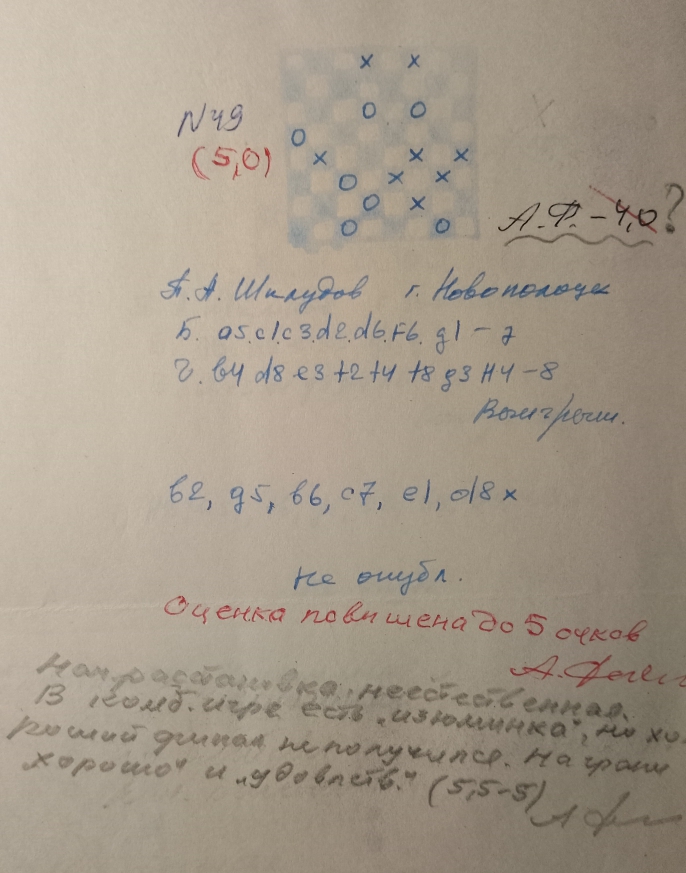 N49
(5,0)
А.Ф. – 4,0?
П. А. Шклудов г. Новополоцк
Б. a5.c1.c3.d2.d6.f6.g1 – 7
Ч. b4 d8 e3 f2 f4 f8 g3 H4 – 8
Выигрыш.
b2, g5, b6, c7, e1, d8 x
Не опубл.
Оценка повышена до 5 очков
Нач. расстановка неестественная.
В комб. игре есть „изюминка", но хо-
роший финал не получился. На грани
„хорошо" и „удовлетв." (5,5-5)